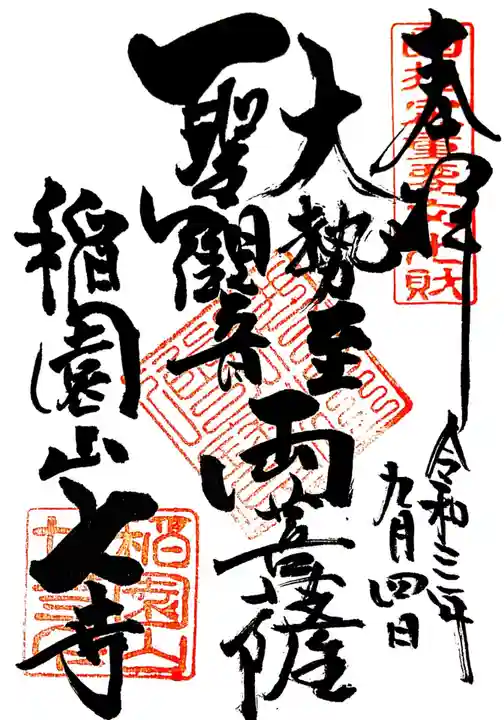 奉拝
国指定重要文化財
令和三年
九月四日
大勢至
聖観音
両菩薩
稲園山七寺
稲園山